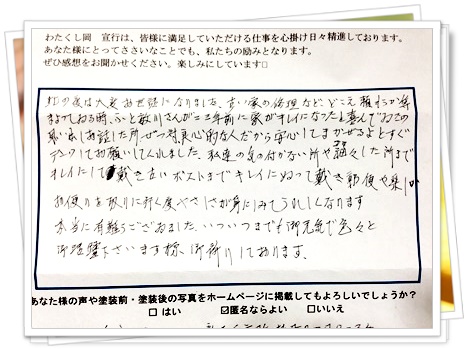 わたくし岡 宣行は、皆様に満足していただける仕事を心掛け日々精進しております。
あなた様にとってささいなことでも、私たちの励みとなります。
ぜひ感想をお聞かせください。楽しみにしています□
この度は大変お世話になりました。古い家の修理などどこえ頼もうか
時、ふと 川さんが二三年前に家がキレイになったと喜んでおるこの
お話した所ぜったい良心的な人だから安心してまかせるよとすぐ
してお願いしてくれました。私達の気の付かない所や 々した所まで
キレイにして戴き古いポストまでキレイにぬって戴き郵便や
お便りを取りに行く度べさしさが身にしみてうれしくなります
本当に有難うございました。いついつまでも御元気で色々と
下さいます様、お祈りしております。
あなた様の声や塗装前・塗装後の写真をホームページに掲載してもよろしいでしょうか？
□ はい ☑匿名ならよい □いいえ